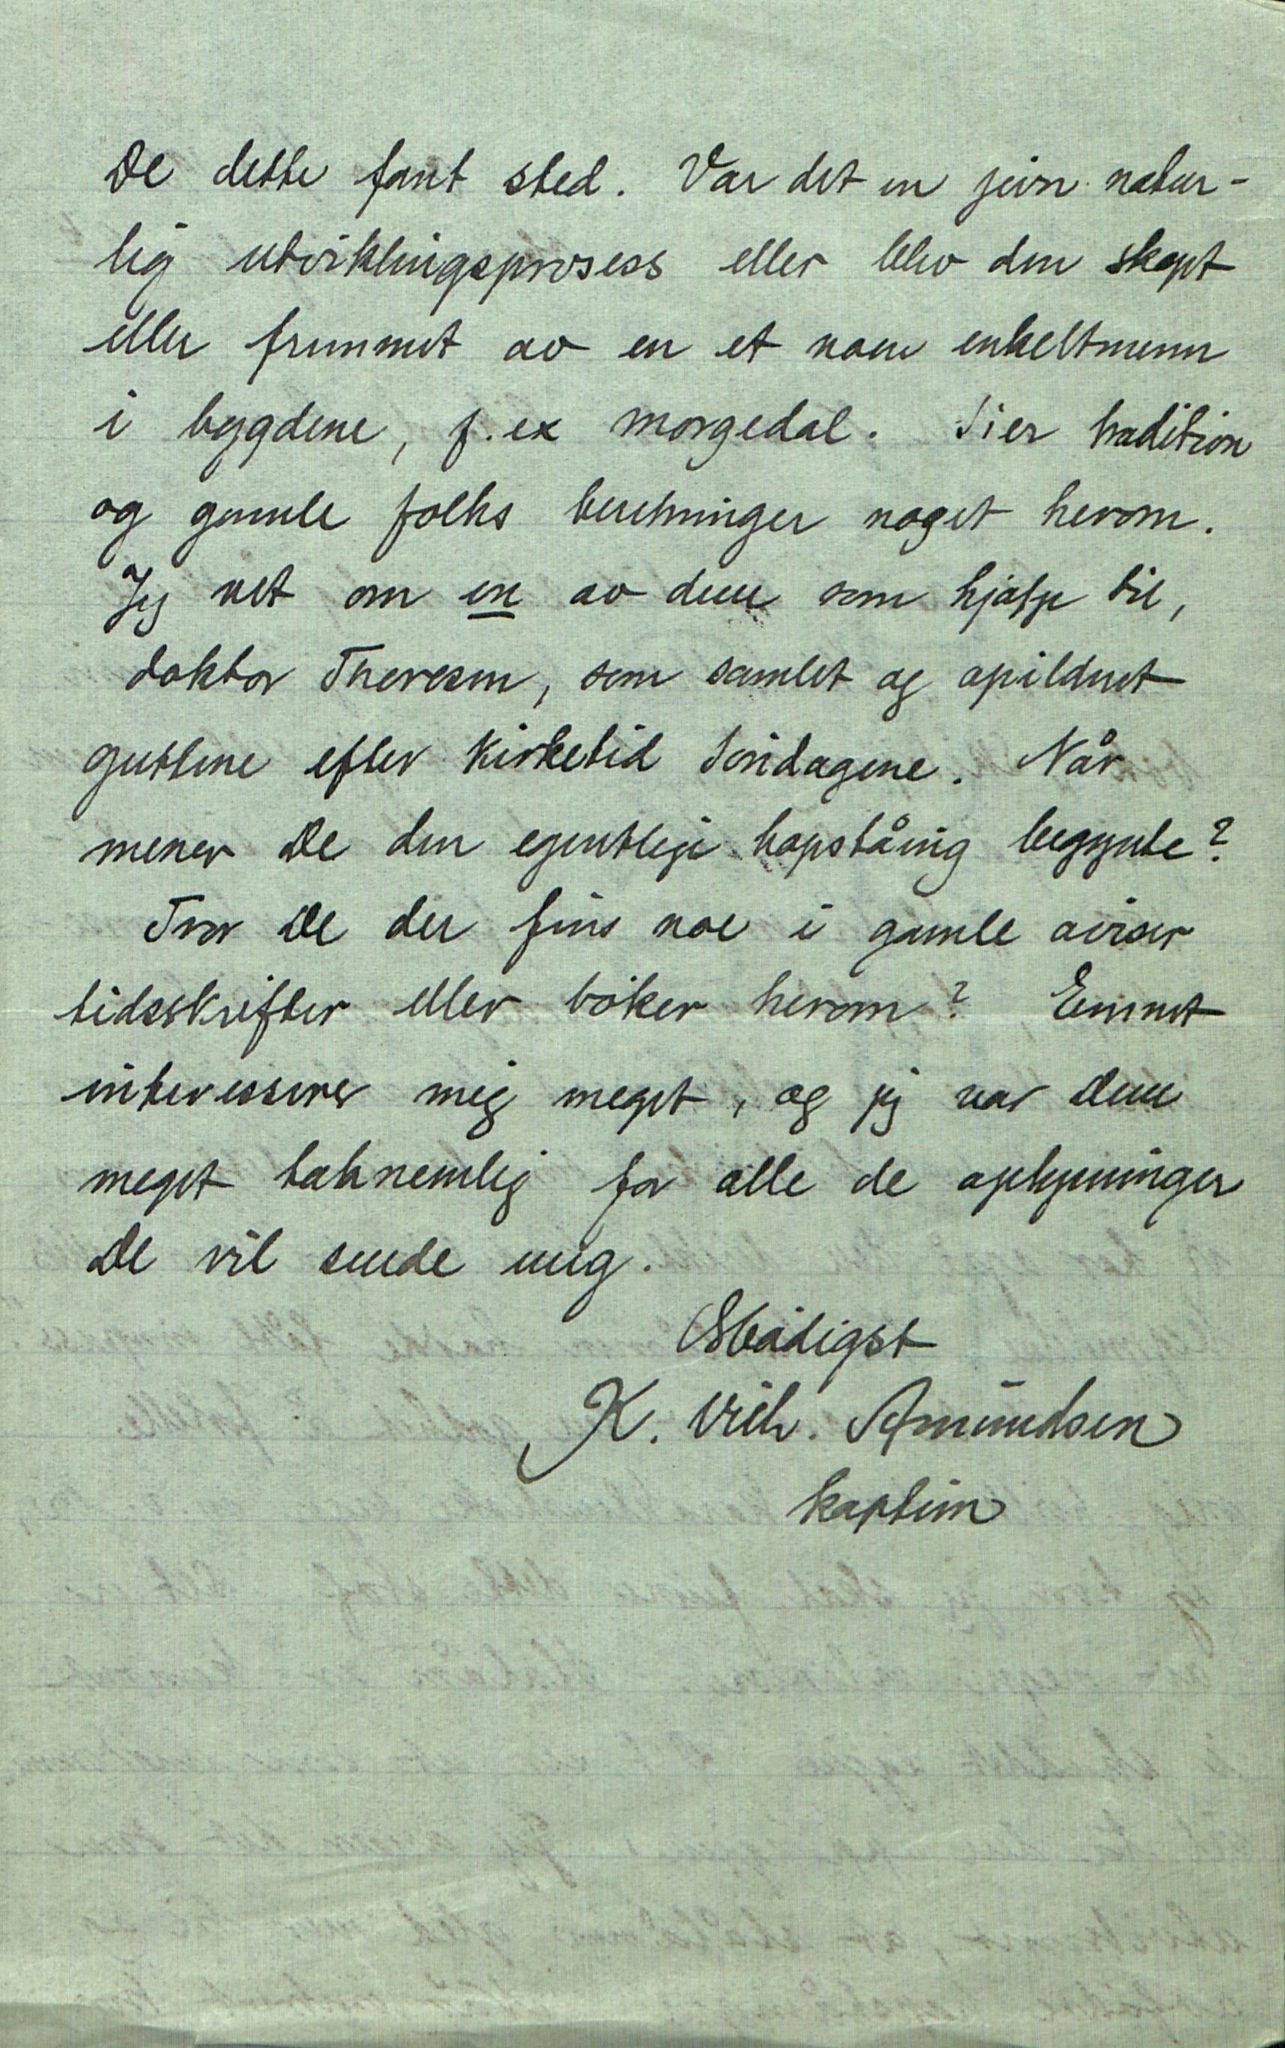 De dette fant sted. Var det en jevn natur-
lig utviklingsprosess eller blev den skapt
eller fremmet av en et noen enkeltmenn
i bygdene, f.ex Morgedal. Sier tradition
og gamle folks beretninger noget herom.
Jeg vet om en av dem som hjalp til,
doktor Theresen, som samlet og opildnet
guttene efter kirketid söndagene. Når
mener De den egentlige hopståing begynte?
Tror De der fins noe i gamle aviser
tidsskrifter eller böker herom? Emnet
interesserer mig meget, og jeg var Dem
meget taknemlig for alle de oplysninger
De vil sende mig.
Ærbödigst
K. Vilh. Amundsen
kaptein